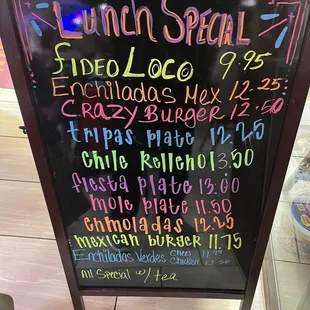 Lunch Special
fideo Loco 9.95
Enchiladas Mex 12.25
Crazy Burger 12.50
tripas plate 12.25
chile Relleno 13.50
fiesta plate 13.00
mole plate 11.50
enmoladas 12.25
mexican burger 11.75
Enchiladas Verdes Chees 11.99
Chicken 12.50
All Special w/ tea